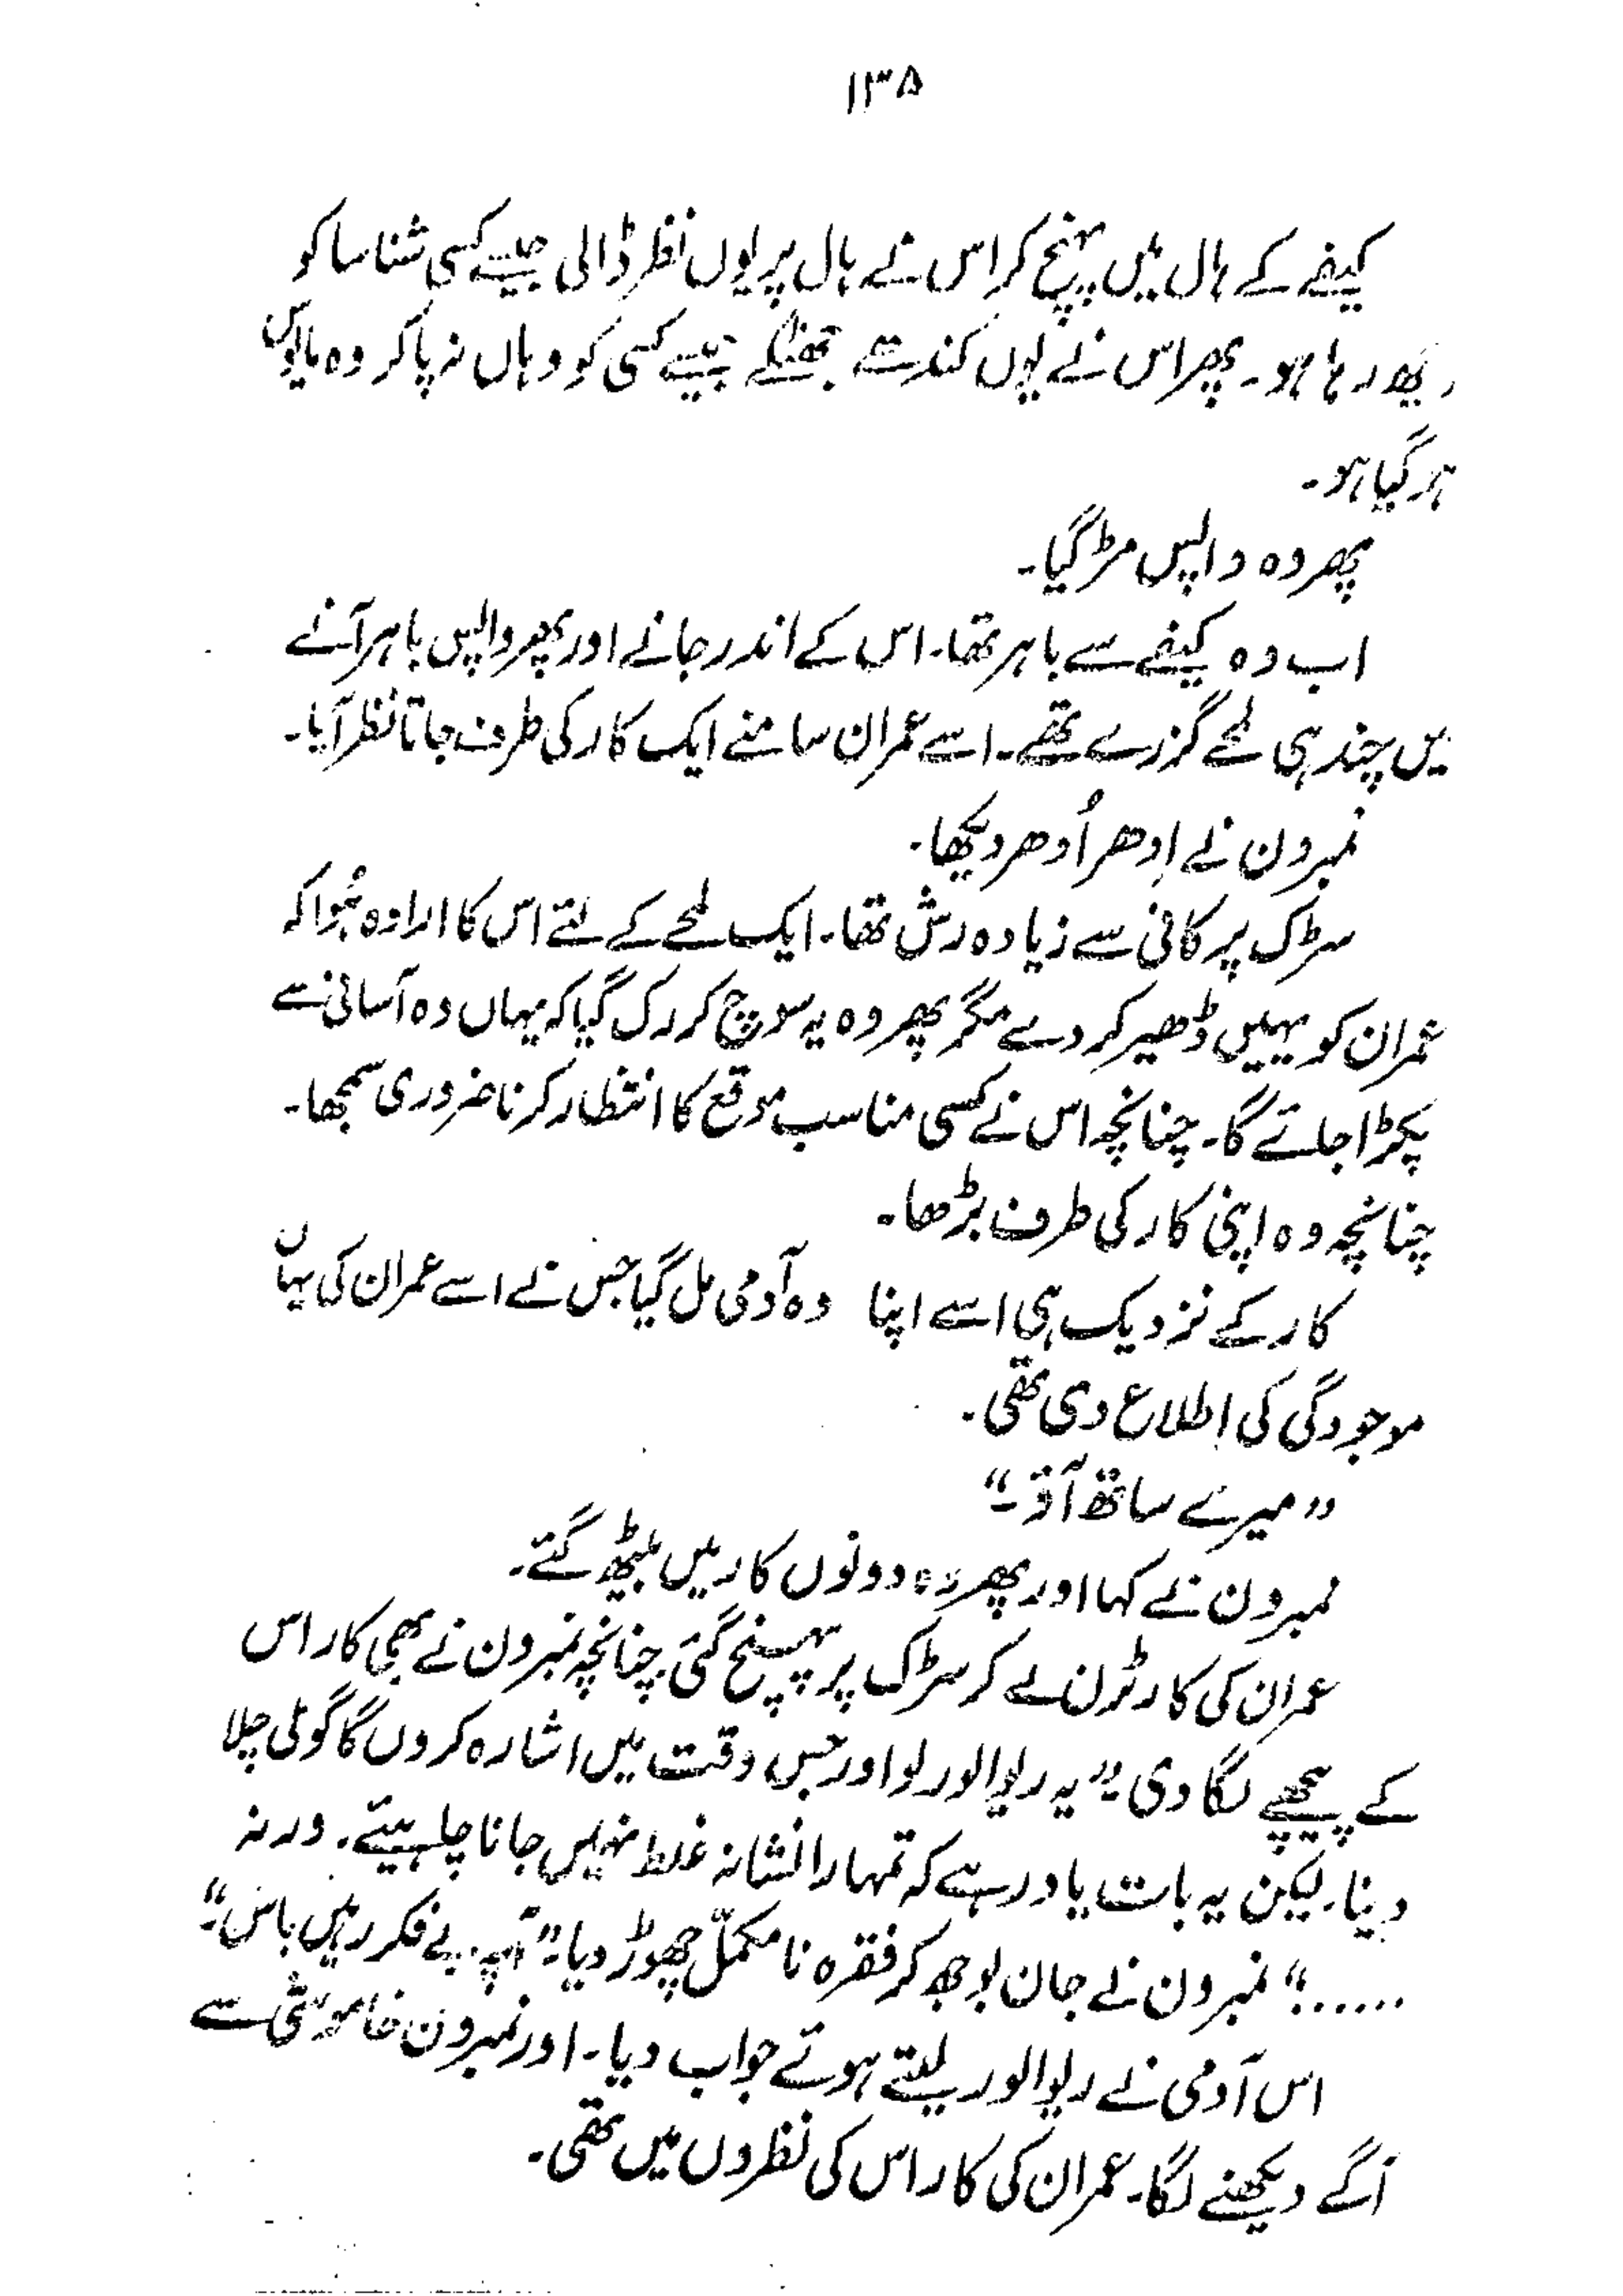 ۱۳۵
کیفے کے ہال میں پہنچ کر اس نے ہال پر یوں نظر ڈالی جیسے کسی شناسا کو
دیکھ رہا ہو۔ پھر اس نے یوں کندھے جھٹکے جیسے کسی کو وہاں نہ پا کر وہ مایوس
ہو گیا ہو۔
پھر وہ واپس مڑ گیا۔
اب وہ کیفے سے باہر تھا۔ اس کے اندر جانے اور پھر واپس باہر آنے
میں چند ہی لمحے گزرے تھے۔ اسے عمران سامنے ایک کار کی طرف جاتا نظر آیا۔
نمبرون نے اِدھر اُدھر دیکھا۔
سڑک پر کافی سے زیادہ رش تھا۔ ایک لمحے کے لئے اس کا ارادہ ہُوا کہ
عمران کو یہیں ڈھیر کر دے مگر پھر وہ یہ سوچ کر رک گیا کہ یہاں وہ آسانی سے
پکڑا جائے گا۔ چنانچہ اس نے کسی مناسب موقع کا انتظار کرنا ضروری سمجھا۔
چنانچہ وہ اپنی کار کی طرف بڑھا۔
کار کے نزدیک ہی اسے اپنا وہ آدمی مل گیا جس نے اسے عمران کی یہاں
موجودگی کی اطلاع دی تھی۔
”میرے ساتھ آؤ۔“
نمبرون نے کہا اور پھر وہ دونوں کار میں بیٹھ گئے۔
عمران کی کار ٹرن لے کر سڑک پر پہنچ گئی چنانچہ نمبرون نے بھی کار اس
کے پیچھے لگا دی ”یہ ریوالور لو اور جس وقت میں اشارہ کروں گا گولی چلا
دینا۔ لیکن یہ بات یاد رہے کہ تمہارا نشانہ غلط نہیں جانا چاہیئے۔ ورنہ
......“ نمبرون نے جان بوجھ کر فقرہ نا مکمل چھوڑ دیا۔ ”آپ بے فکر رہیں باس۔“
اس آدمی نے ریوالور لیتے ہوئے جواب دیا۔ اور نمبرون خاموشی سے
آگے دیکھنے لگا۔ عمران کی کار اس کی نظروں میں تھی۔